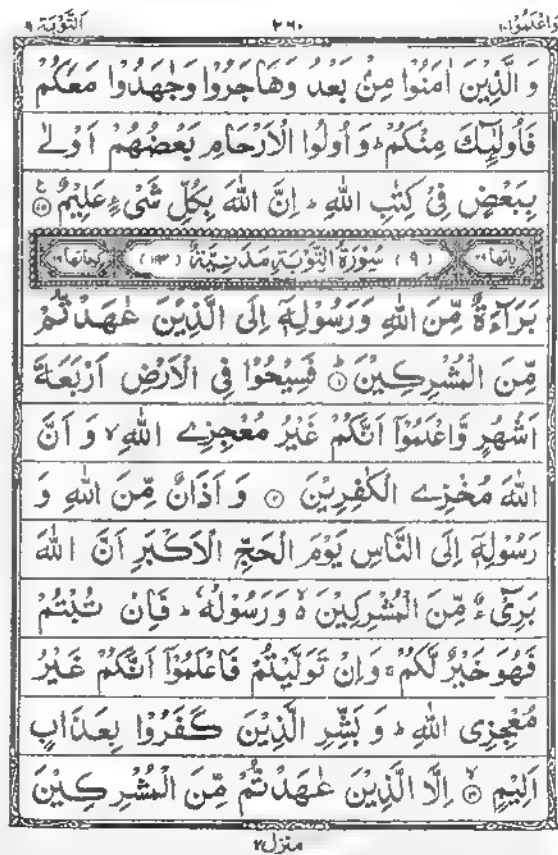 وَاعْلَمُوْۤا ۱۰ ۲۶۰ اَلتَّوْبَة ۹
وَ الَّذِيْنَ اٰمَنُوْا مِنْۢ بَعْدُ وَهَاجَرُوْا وَجٰهَدُوْا مَعَكُمْ
فَاُولٰٓئِكَ مِنْكُمْ ؕ وَ اُولُوا الْاَرْحَامِ بَعْضُهُمْ اَوْلٰى
بِبَعْضٍ فِيْ كِتٰبِ اللّٰهِ ؕ اِنَّ اللّٰهَ بِكُلِّ شَيْءٍ عَلِيْمٌ ۝۷۵
(۹) سُوْرَةُ التَّوْبَةِ مَدَنِيَّةٌ (۱۱۳)
بَرَآءَةٌ مِّنَ اللّٰهِ وَرَسُوْلِهٖۤ اِلَى الَّذِيْنَ عٰهَدْتُّمْ
مِّنَ الْمُشْرِكِيْنَ ؕ۝۱ فَسِيْحُوْا فِي الْاَرْضِ اَرْبَعَةَ
اَشْهُرٍ وَّاعْلَمُوْۤا اَنَّكُمْ غَيْرُ مُعْجِزِے اللّٰهِ ۙ وَ اَنَّ
اللّٰهَ مُخْزِے الْكٰفِرِيْنَ ۝۲ وَ اَذَانٌ مِّنَ اللّٰهِ وَ
رَسُوْلِهٖۤ اِلَى النَّاسِ يَوْمَ الْحَجِّ الْاَكْبَرِ اَنَّ اللّٰهَ
بَرِيْٓءٌ مِّنَ الْمُشْرِكِيْنَ ۙ۬ وَرَسُوْلُهٗ ؕ فَاِنْ تُبْتُمْ
فَهُوَ خَيْرٌ لَّكُمْ ۚ وَاِنْ تَوَلَّيْتُمْ فَاعْلَمُوْۤا اَنَّكُمْ غَيْرُ
مُعْجِزِي اللّٰهِ ؕ وَ بَشِّرِ الَّذِيْنَ كَفَرُوْا بِعَذَابٍ
اَلِيْمٍ ۙ۝۳ اِلَّا الَّذِيْنَ عٰهَدْتُّمْ مِّنَ الْمُشْرِكِيْنَ
منزل ۲